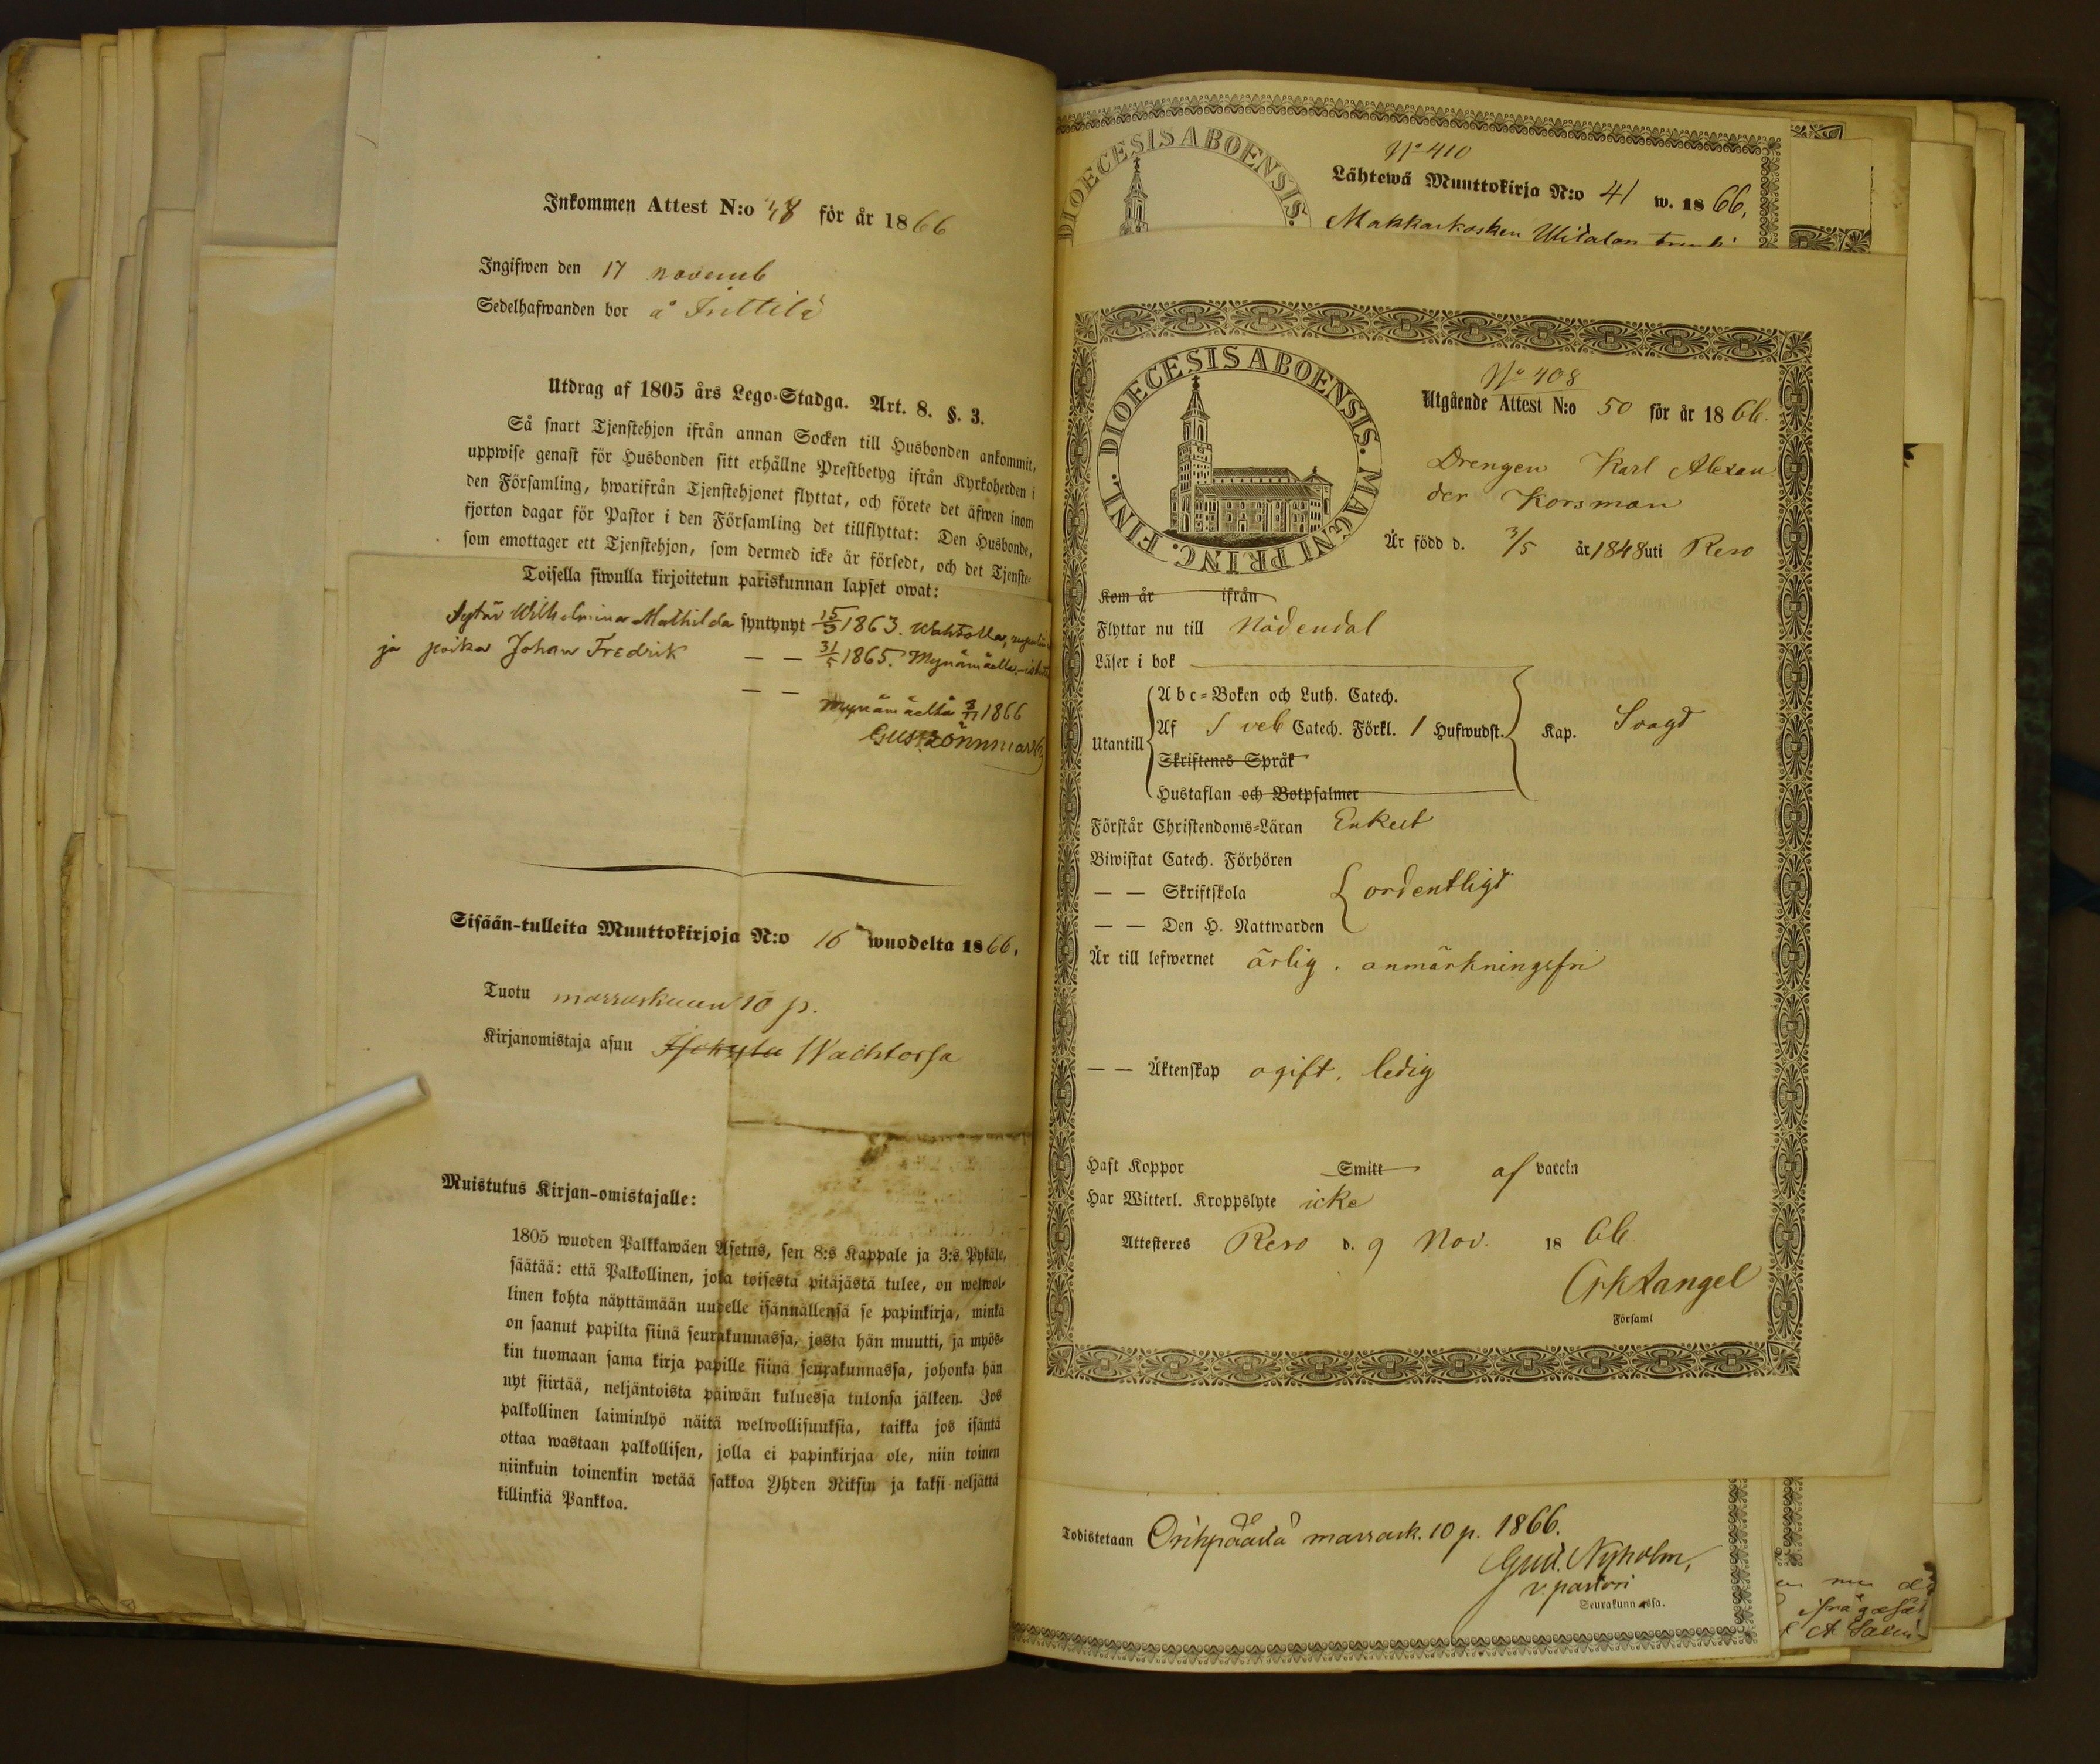 Inkommen Attest N:o 48 för år 1866
Ingifwen den 17 novemb
Sedelhafwanden bor å Inttilä
Utdrag af 1805 års Lego-Stadga. Art. 8. §. 3.
Så snart Tjenstehjon ifrån annan Socken till Husbonden ankommit,
uppwise genast för Husbonden sitt erhållne Prestbetyg ifrån Kyrkoherden i
den Församling, hwarifrån Tjenstehjonet flyttat, och förete det äfwen inom
fjorton dagar för Pastor i den Församling det tillflyttat: Den Husbonde,
som emottager ett Tjenstehjon, som dermed icke är försedt, och det Tjenste-
Toisella siwulla kirjoitetun pariskunnan lapset owat:
Tytär Wilhelmina Mathilda syntynyt 15/3 1863. Wahtolla,
ja poika Johan Fredrik — — 31/5 1865. Mynämäella
— —
Mynämäeltä 3/11 1866
Gust. Lönnmark
Sisään-tulleita Muuttokirjoja N:o 16 wuodelta 1866.
Tuotu marraskuun 10 p.
Kirjanomistaja asuu Wachtossa
Muistutus Kirjan-omistajalle:
1805 wuoden Palkkawäen Asetus, sen 8:s Kappale ja 3:s Pykäle,
säätää: että Palkollinen, joka toisesta pitäjästä tulee, on welwol-
linen kohta näyttämään uudelle isännällensä se papinkirja, minkä
on saanut papilta siinä seurakunnassa, josta hän muutti, ja myös-
kin tuomaan sama kirja papille siinä seurakunnassa, johonka hän
nyt siirtää, neljäntoista päiwän kuluessa tulonsa jälkeen. Jos
palkollinen laiminlyö näitä welwollisuuksia, taikka jos isäntä
ottaa wastaan palkollisen, jolla ei papinkirjaa ole, niin toinen
niinkuin toinenkin wetää sakkoa Yhden Riksin ja kaksi neljättä
killinkiä Pankkoa.
DIOECESIS ABOENSIS.
No 410
Lähtewä Muuttokirja N:o 41 w. 1866.
Makkarkosken Ulitalon
DIOECESIS ABOENSIS. MAGNI PRINC. FINL.
No 408
Utgående Attest N:o 50 för år 1866.
Drengen Karl Alexan
der Korsman
Är född d. 3/5 år 1848 uti Reso
Kom år ifrån
Flyttar nu till Nådendal
Läser i bok
Utantill
Abc-Boken och Luth. Catech.
Af Sveb Catech. Förkl. 1 Hufwudst. Kap. Svagt
Skriftenes Språk
Hustaflan och Botpsalmer
Förstår Christendoms-Läran Enkelt
Biwistat Catech. Förhören
— — Skriftskola ordentligt
— — Den H. Nattwarden
Är till lefwernet ärlig. anmärkningsfri
— — Äktenskap ogift, ledig
Haft Koppor Smitt af vaccin
Har Witterl. Kroppslyte icke
Attesteres Reso d. 9 Nov. 1866
Församl
Todistetaan Orihpäästä marrask. 10 p. 1866.
Gust. Nyholm,
v. pastori
Seurakunnassa.